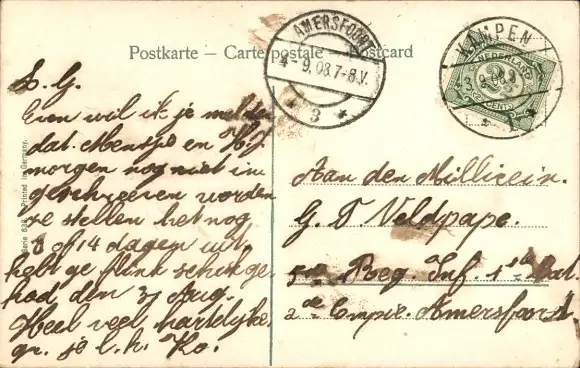 Postkarte — Carte postale — Postcard
AMERSFOORT
4-9.08.7-8V.
3
KAMPEN
NEDERLAND
2½
CENT
Printed in Germany.
L. G.
Even wil ik je melden
dat Mensje en H. J.
morgen nog niet in
geschreeven worden
ze stellen het nog
8 of 14 dagen uit,
hebt ge flink schik ge-
had den 31 Aug.
Heel veel hartelijke
gr. je l. h. Ko.
Aan den Milicien.
G. T. Veldpape.
5de Reg. Inf. 1ste Bat.
2de Compie. Amersfoort.